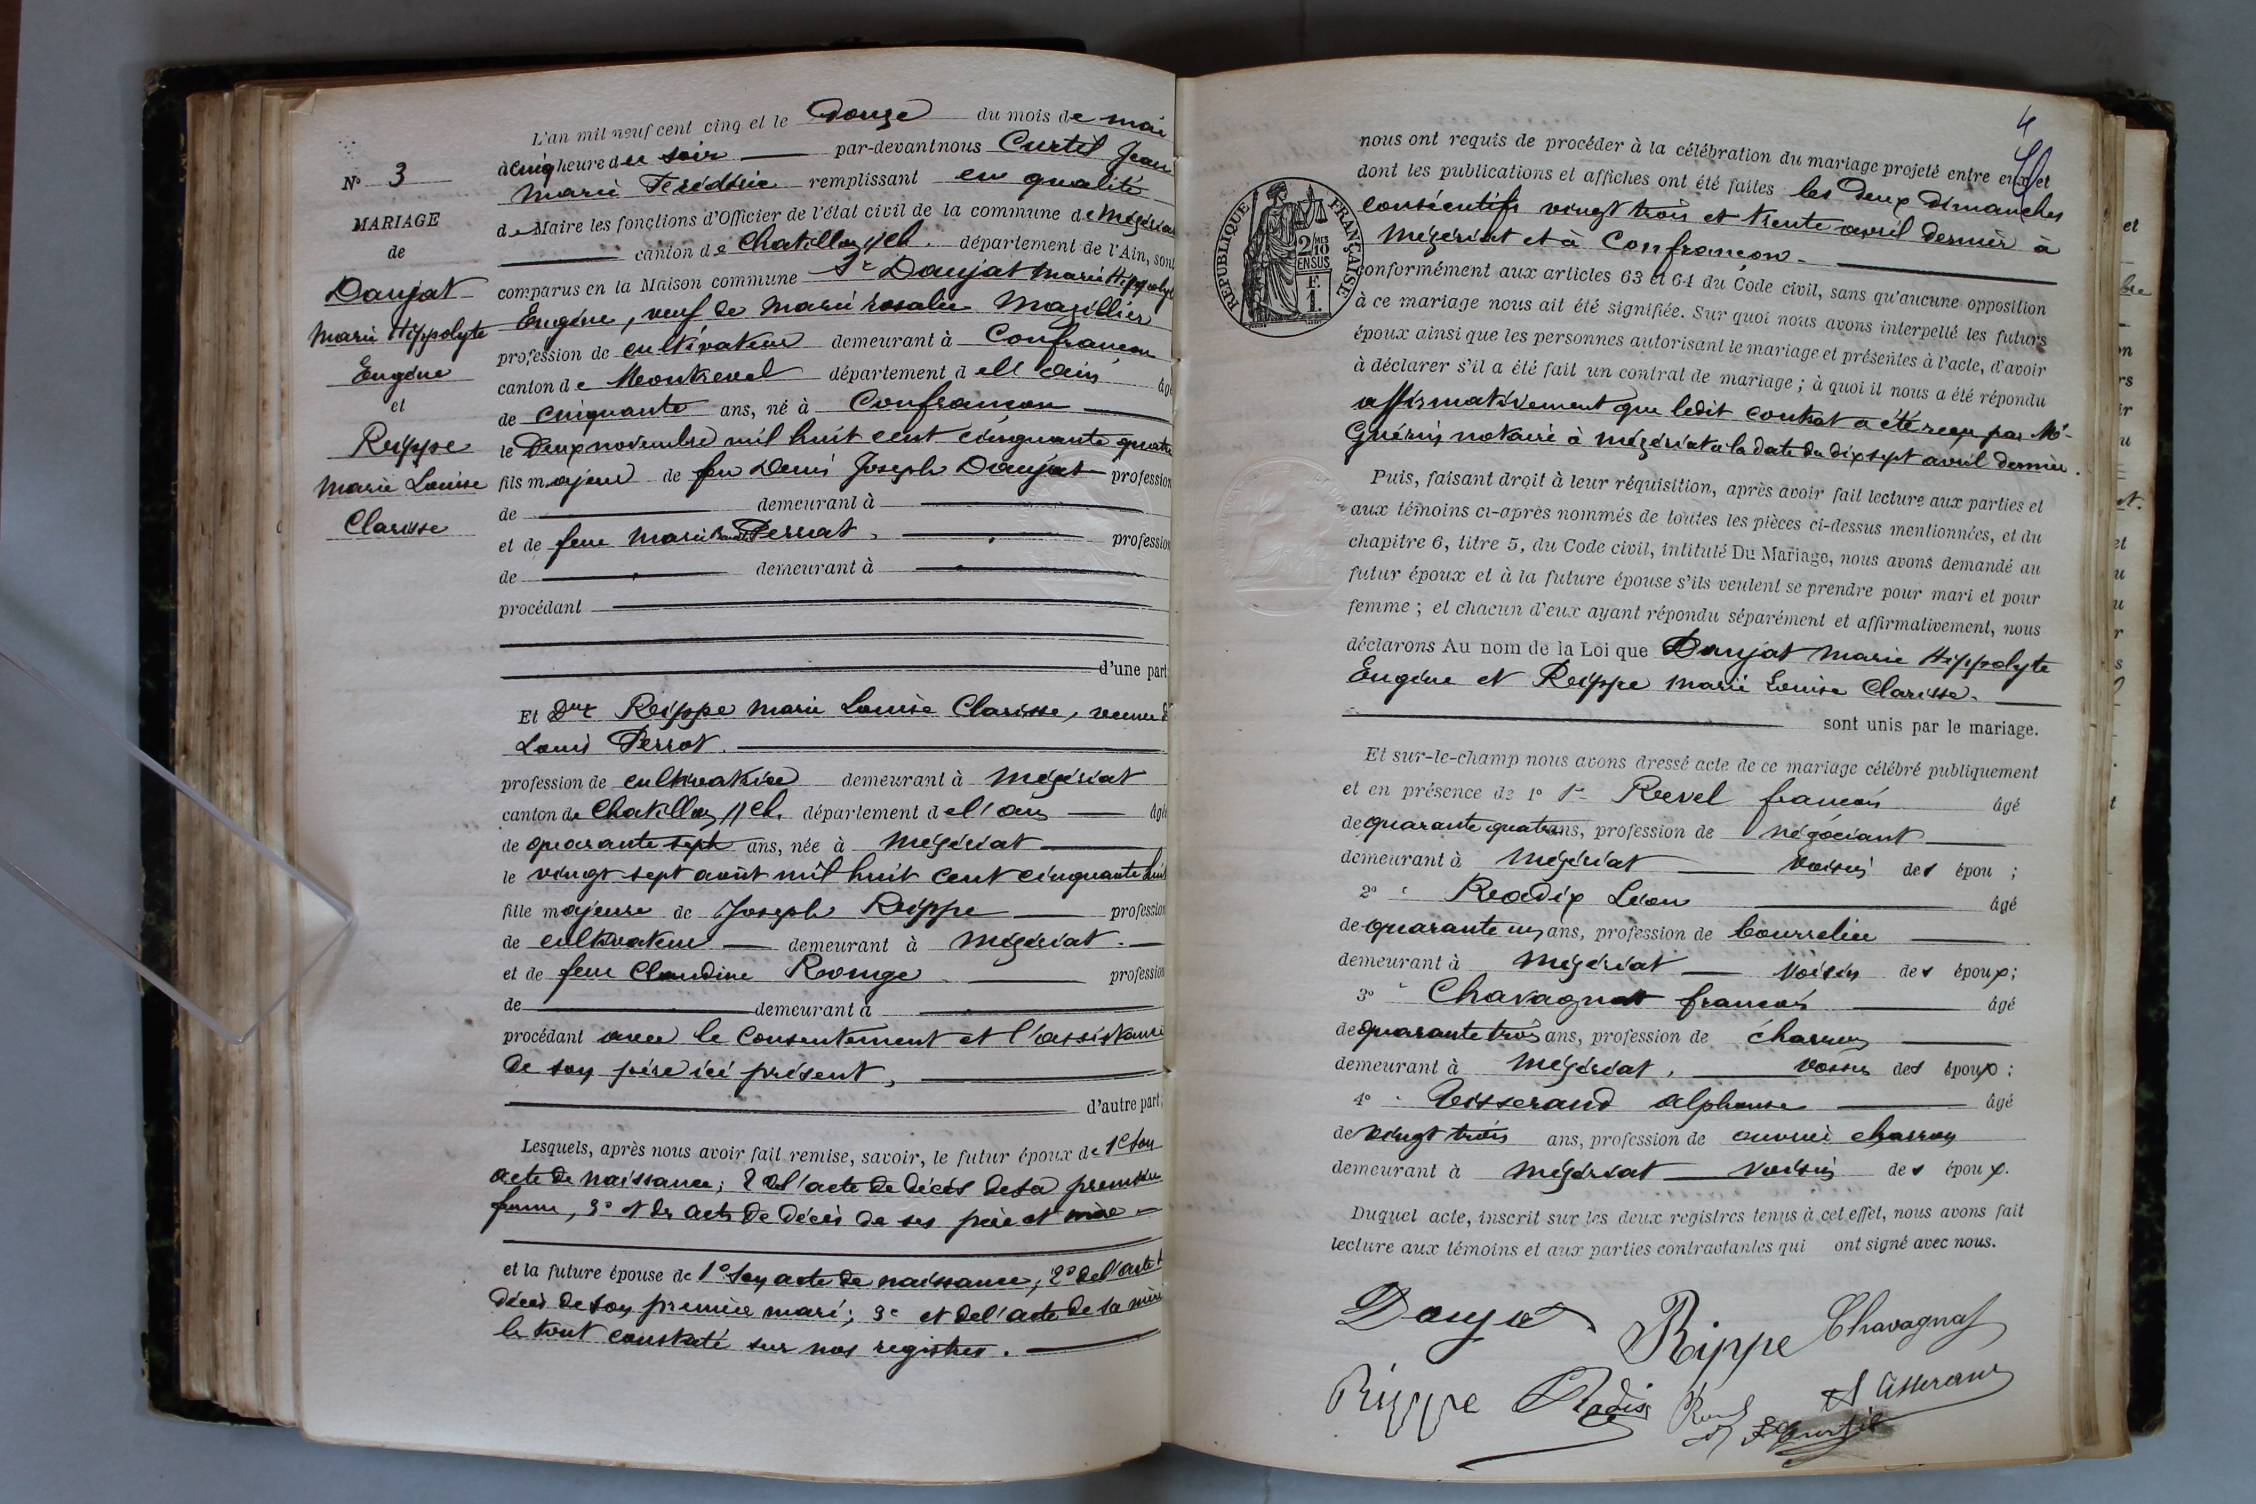 N° 3
MARIAGE
de
Daujat
Marie Hippolyte
Eugène
et
Rippe
Marie Louise
Clarisse
L'an mil neuf cent cinq et le Douze du mois de mai
à cinq heure du soir par-devant nous Curtil Jean
Marie Frédéric remplissant en qualité
de Maire les fonctions d'Officier de l'état civil de la commune de Mézériat
canton de Chatillon s/ Ch. département de l'Ain, sont
comparus en la Maison commune Sr Daujat Marie Hippolyte
Eugène, veuf de Marie rosalie Mazillier
profession de cultivateur demeurant à Confrançon
canton de Montrevel département de l'ain âgé
de cinquante ans, né à Confrançon
le Deux novembre mil huit cent cinquante quatre
fils majeur de feu Denis Joseph Daujat profession
de demeurant à
et de feue Marie Perrat, profession
de demeurant à
procédant
d'une part
Et Dme Rippe Marie Louise Clarisse, veuve de
Louis Perrot.
profession de cultivatrice demeurant à Mézériat
canton de Chatillon s/ Ch. département de l'ain âgée
de quarante sept ans, née à Mézériat
le vingt-sept août mil huit cent cinquante huit
fille majeure de Joseph Rippe profession
de cultivateur demeurant à Mézériat.
et de feue Claudine Rronge profession
de demeurant à
procédant avec le consentement et l'assistance
de son père ici présent,
d'autre part,
Lesquels, après nous avoir fait remise, savoir, le futur époux de 1° son
acte de naissance; 2° de l'acte de décès de sa première
femme, 3° et des acts de décès de ses père et mère
et la future épouse de 1° son acte de naissance; 2° de l'acte de
décès de son premier mari; 3° et de l'acte de sa mère
le tout constaté sur nos registres.
4
RÉPUBLIQUE FRANÇAISE
2/10 MES
EN SUS
1 F.
nous ont requis de procéder à la célébration du mariage projeté entre eux et
dont les publications et affiches ont été faites les deux dimanches
consécutifs vingt trois et trente avril dernier à
Mézériat et à Confrançon.
conformément aux articles 63 et 64 du Code civil, sans qu'aucune opposition
à ce mariage nous ait été signifiée. Sur quoi nous avons interpellé les futurs
époux ainsi que les personnes autorisant le mariage et présentes à l'acte, d'avoir
à déclarer s'il a été fait un contrat de mariage; à quoi il nous a été répondu
affirmativement que ledit contrat a été reçu par Me
Guérin notaire à mézériat à la date du dix sept avril dernier.
Puis, faisant droit à leur réquisition, après avoir fait lecture aux parties et
aux témoins ci-après nommés de toutes les pièces ci-dessus mentionnées, et du
chapitre 6, titre 5, du Code civil, intitulé Du Mariage, nous avons demandé au
futur époux et à la future épouse s'ils veulent se prendre pour mari et pour
femme; et chacun d'eux ayant répondu séparément et affirmativement, nous
déclarons Au nom de la Loi que Daujat Marie Hippolyte
Eugène et Rippe Marie Louise Clarisse.
sont unis par le mariage.
Et sur-le-champ nous avons dressé acte de ce mariage célébré publiquement
et en présence de 1° Sr Revel françois âgé
de quarante quatre ans, profession de négociant
demeurant à Mézériat voisin des épou ;
2° " Radix Léon âgé
de quarante un ans, profession de bourrelier
demeurant à Mézériat voisin des époux;
3° " Chavagnat françois âgé
de quarante trois ans, profession de charron
demeurant à Mézériat, voisin des époux;
4° " Tisserand alphonse âgé
de vingt trois ans, profession de ouvrier charron
demeurant à Mézériat voisin des époux.
Duquel acte, inscrit sur les deux registres tenus à cet effet, nous avons fait
lecture aux témoins et aux parties contractantes qui ont signé avec nous.
Daujat Rippe Chavagnat
Rippe Radix Revel A Tisserand
Curtil